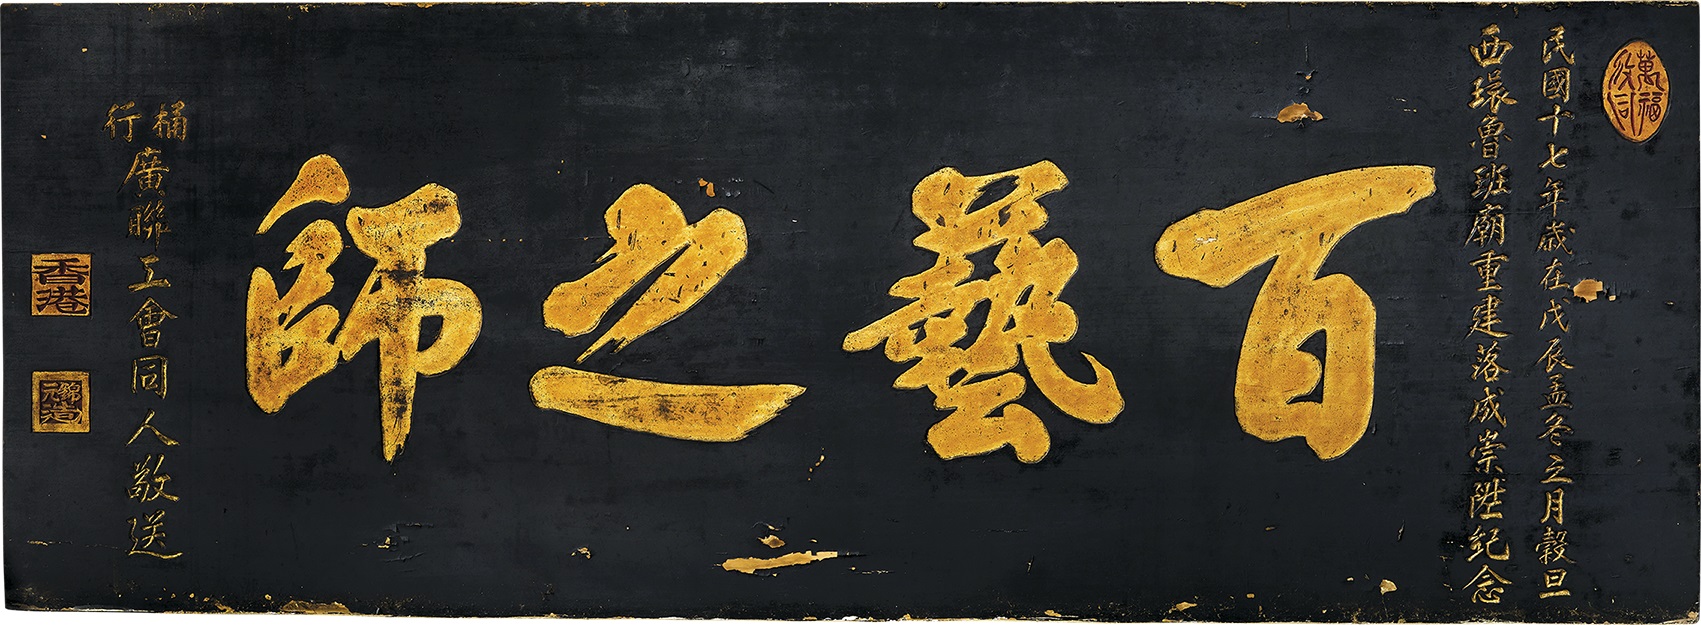 萬福攸同
民國十七年歲在戊辰孟冬之月穀旦
西環魯班廟重建落成崇陞紀念
百藝之師
桶行廣聯工會同人敬送
香港